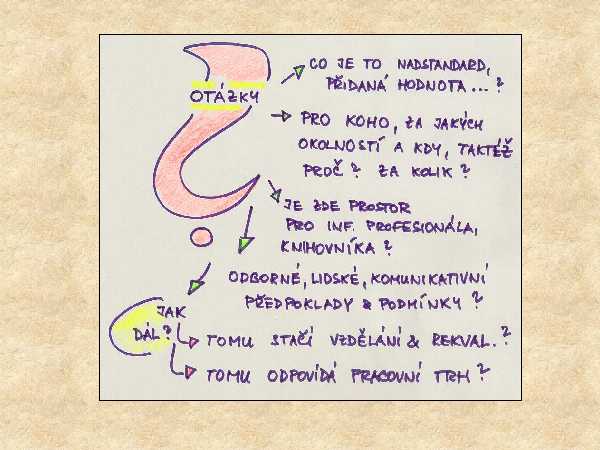 OTÁZKY
CO JE TO NADSTANDARD,
PŘIDANÁ HODNOTA... ?
PRO KOHO, ZA JAKÝCH
OKOLNOSTÍ A KDY, TAKTÉŽ
PROČ? ZA KOLIK?
JE ZDE PROSTOR
PRO INF. PROFESIONÁLA,
KNIHOVNÍKA?
ODBORNÉ, LIDSKÉ, KOMUNIKATIVNÍ
PŘEDPOKLADY & PODMÍNKY?
JAK
DÁL?
TOMU STAČÍ VZDĚLÁNÍ & REKVAL.?
TOMU ODPOVÍDÁ PRACOVNÍ TRH?